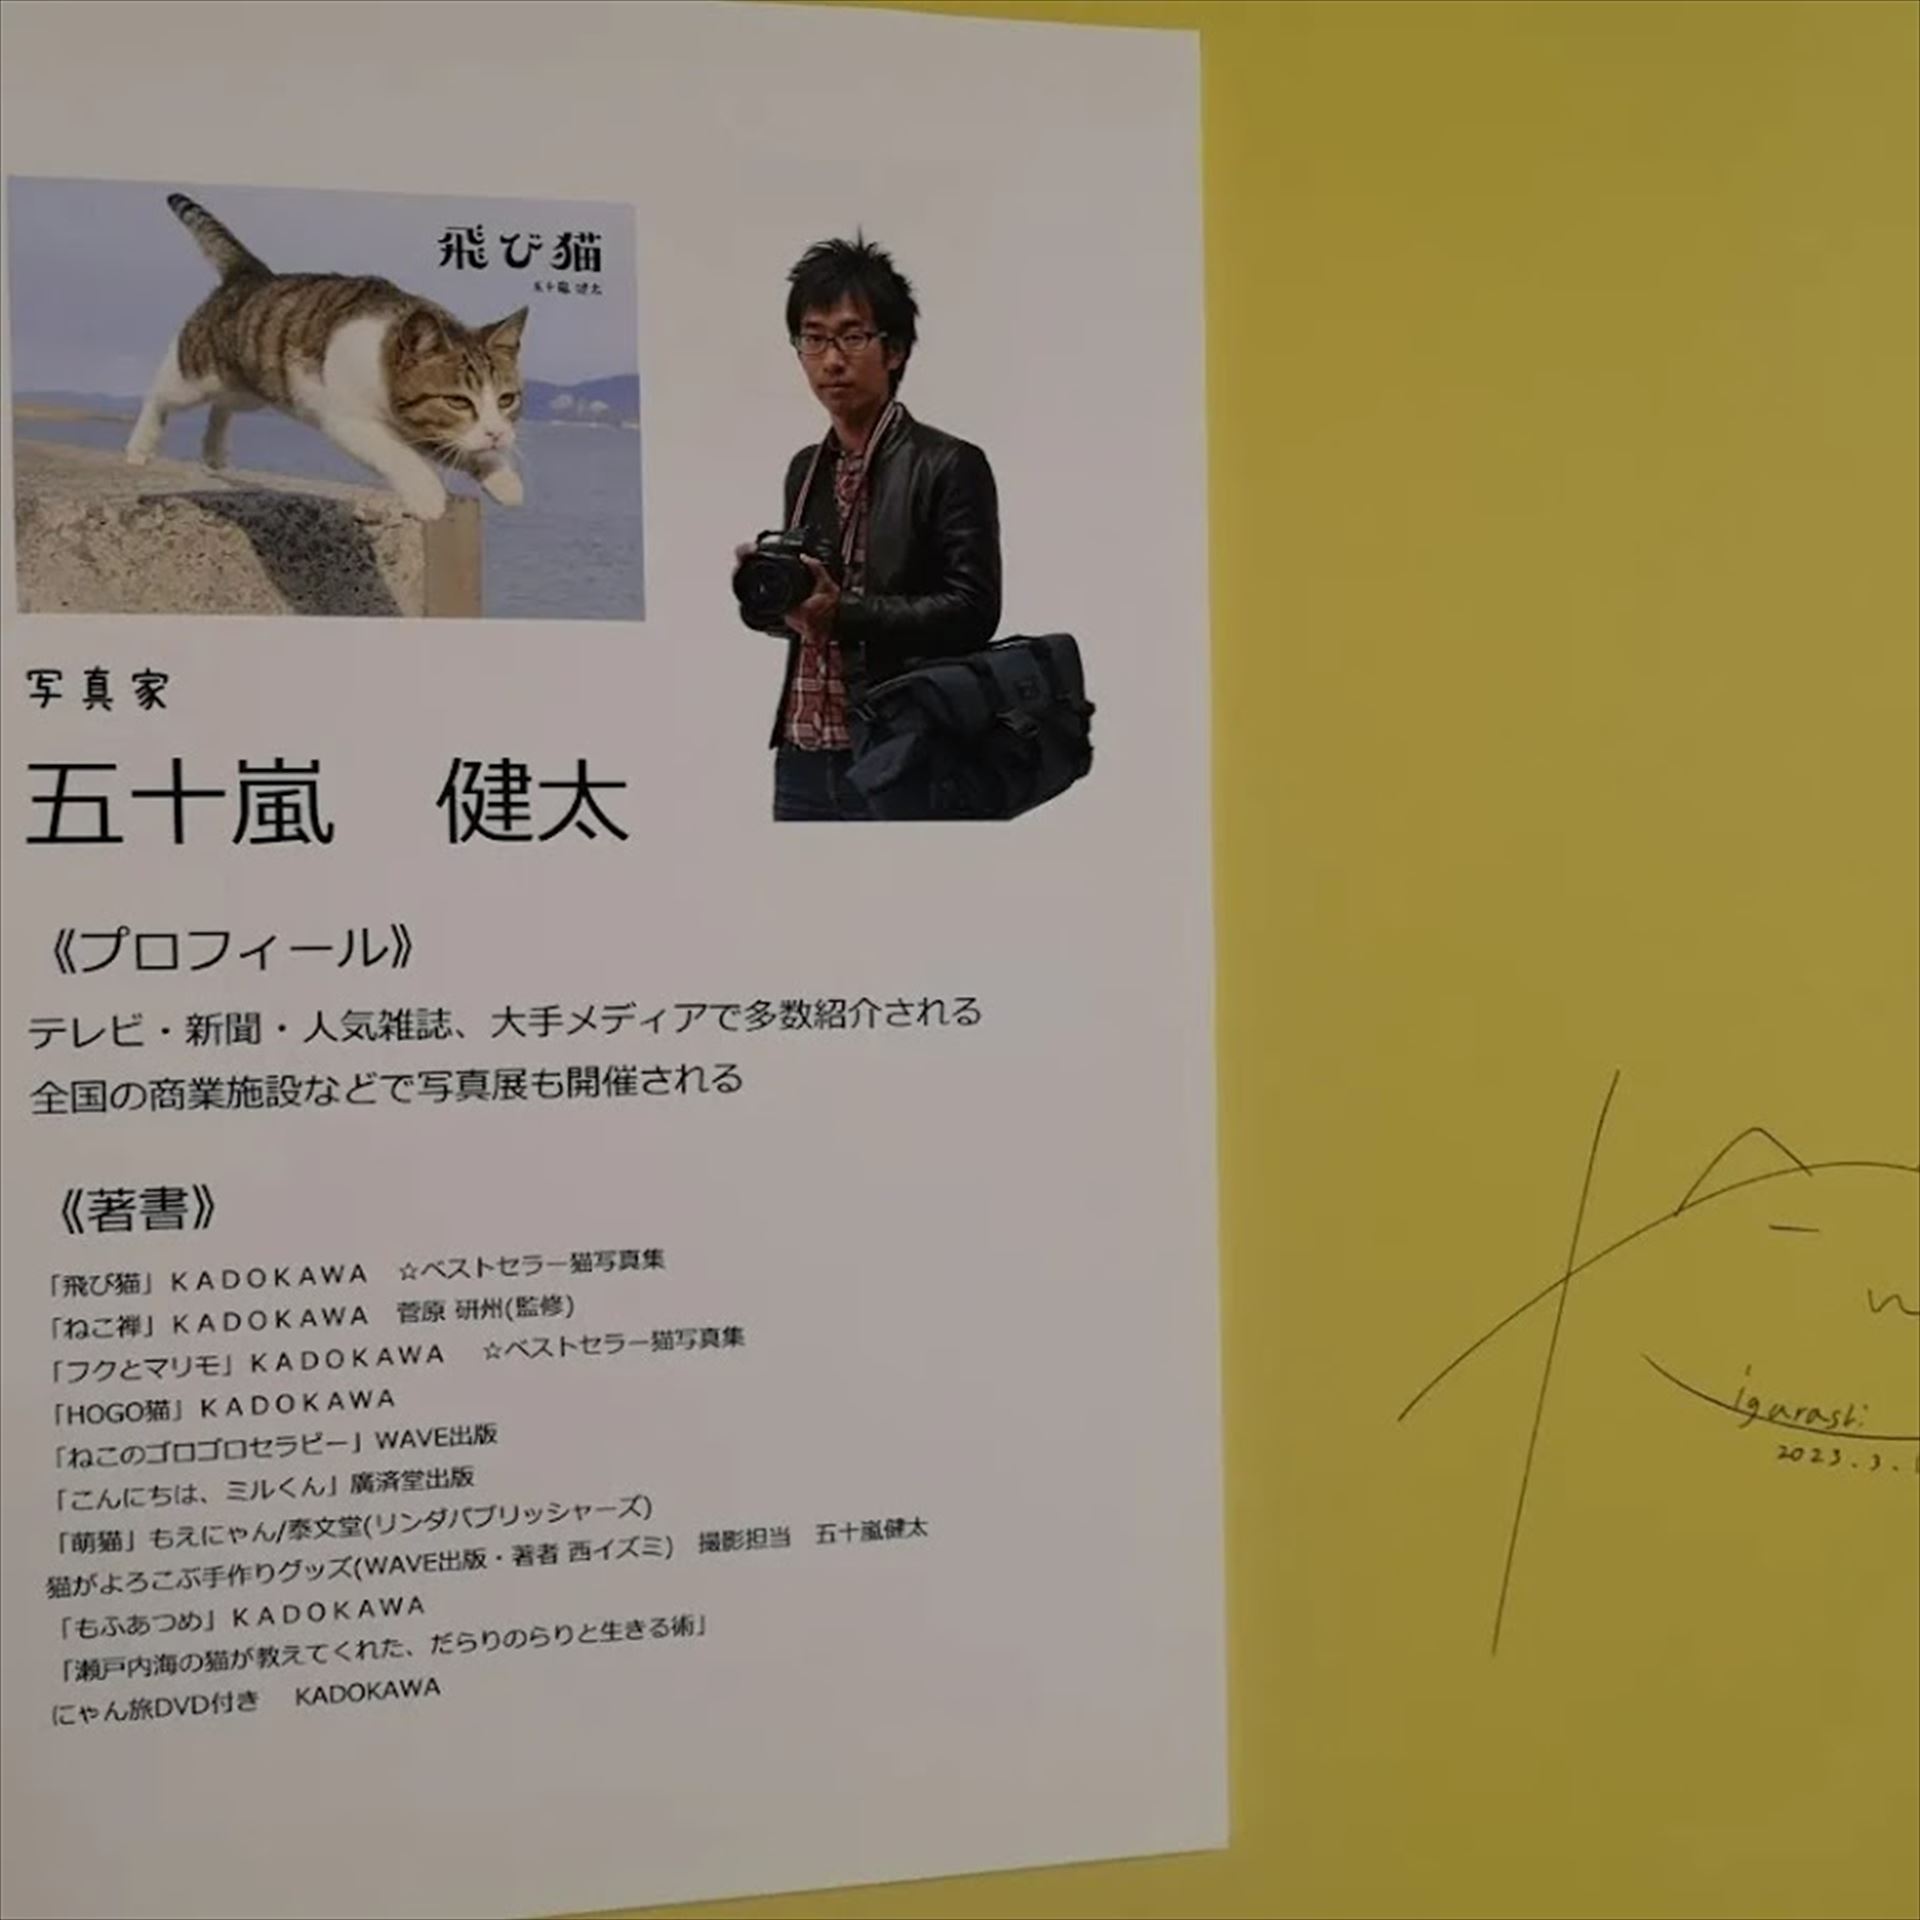 飛び猫
五十嵐 健太
写真家
五十嵐　健太
《プロフィール》
テレビ・新聞・人気雑誌、大手メディアで多数紹介される
全国の商業施設などで写真展も開催される
《著書》
「飛び猫」ＫＡＤＯＫＡＷＡ　☆ベストセラー猫写真集
「ねこ禅」ＫＡＤＯＫＡＷＡ　菅原 研州(監修)
「フクとマリモ」ＫＡＤＯＫＡＷＡ　☆ベストセラー猫写真集
「HOGO猫」ＫＡＤＯＫＡＷＡ
「ねこのゴロゴロセラピー」WAVE出版
「こんにちは、ミルくん」廣済堂出版
「萌猫」もえにゃん/泰文堂(リンダパブリッシャーズ)
猫がよろこぶ手作りグッズ(WAVE出版・著者 西イズミ)　撮影担当　五十嵐健太
「もふあつめ」ＫＡＤＯＫＡＷＡ
「瀬戸内海の猫が教えてくれた、だらりのらりと生きる術」
にゃん旅DVD付き　KADOKAWA
igarashi
2023.3.